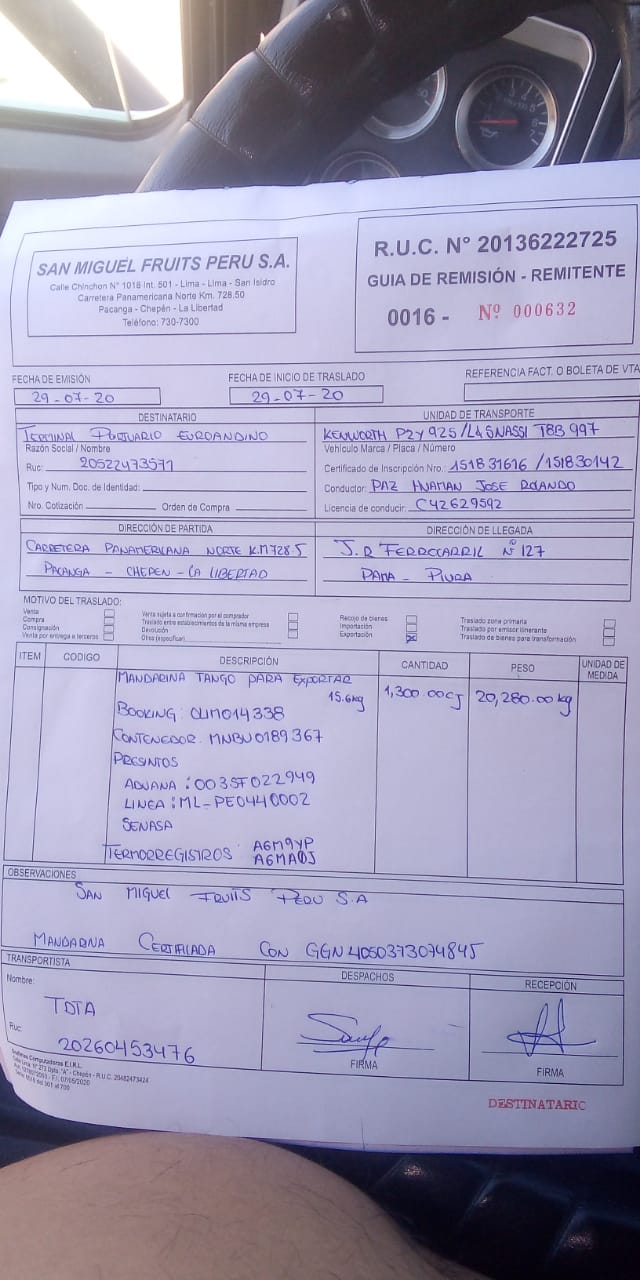 SAN MIGUEL FRUITS PERU S.A.
Calle Chinchon N° 1018 Int. 501 - Lima - Lima - San Isidro
Carretera Panamericana Norte Km. 728.50
Pacanga - Chepén - La Libertad
Teléfono: 730-7300
R.U.C. N° 20136222725
GUIA DE REMISIÓN - REMITENTE
0016 - Nº 000632
FECHA DE EMISIÓN
29-07-20
FECHA DE INICIO DE TRASLADO
29-07-20
REFERENCIA FACT. O BOLETA DE VTA
DESTINATARIO
TERMINAL PORTUARIO EUROANDINO
Razón Social / Nombre
Ruc: 20522473571
Tipo y Num. Doc. de Identidad:
Nro. Cotización Orden de Compra
UNIDAD DE TRANSPORTE
KENWORTH P2Y 925 / LASNASSI T8B 997
Vehículo Marca / Placa / Número
Certificado de Inscripción Nro.: 151831616 / 151830142
Conductor: PAZ HUAMAN JOSE ROLANDO
Licencia de conducir: C42629592
DIRECCIÓN DE PARTIDA
CARRETERA PANAMERICANA NORTE K.M 728.5
PACANGA - CHEPEN - LA LIBERTAD
DIRECCIÓN DE LLEGADA
J.R FERROCARRIL Nº 127
PAITA - PIURA
MOTIVO DEL TRASLADO:
Venta
Compra
Consignación
Venta por entrega a terceros
Venta sujeta a confirmacion por el comprador
Traslado entre establecimientos de la misma empresa
Devolución
Otros (especificar)
Recojo de bienes
Importación
Exportación X
Traslado zona primaria
Traslado por emisor itinerante
Traslado de bienes para transformación
ITEM CODIGO DESCRIPCIÓN CANTIDAD PESO UNIDAD DE MEDIDA
MANDARINA TANGO PARA EXPORTAR
15.6kg 1,300.00CJ 20,280.00 kg
BOOKING: OLIMO14338
CONTENEDOR. MNBU0189367
PRESINTOS
ADUANA: 003SF022949
LINEA: ML-PE0440002
SENASA
TERMORREGISTROS A6M9YP
A6MA0J
OBSERVACIONES
SAN MIGUEL FRUITS PERU S.A
MANDARINA CERTIFICADA CON GGN 4050373074845
TRANSPORTISTA
Nombre:
TDTA
Ruc:
20260453476
DESPACHOS
FIRMA
RECEPCIÓN
FIRMA
DESTINATARIO